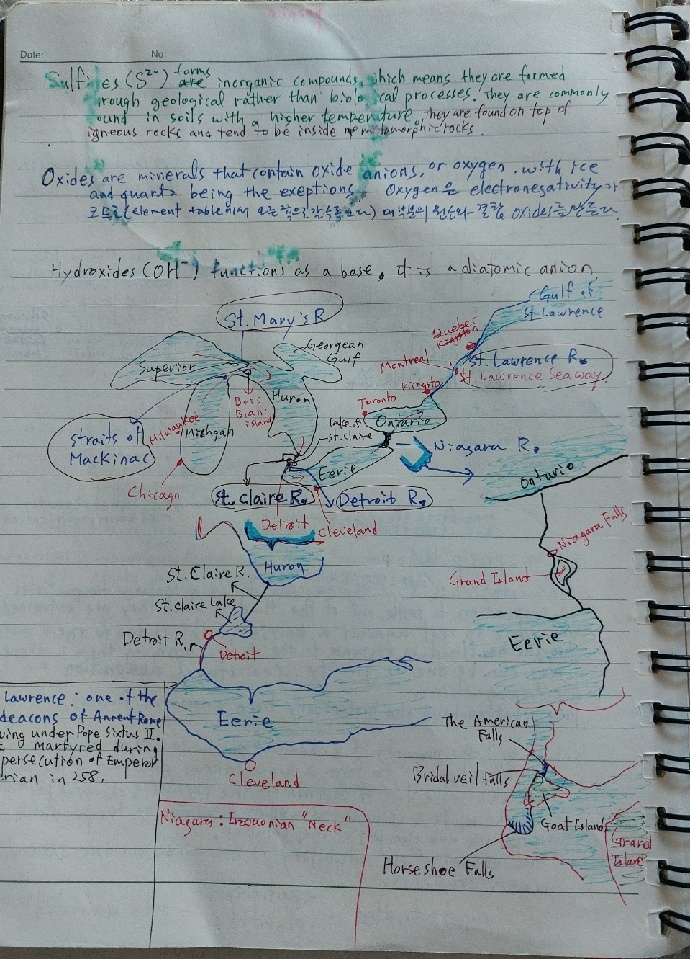 Date: No
Sulfides (S²⁻) forms are inorganic compounds, which means they are formed
through geological rather than biological processes. They are commonly
found in soils with a higher temperature. they are found on top of
igneous rocks and tend to be inside metamorphic rocks.
Oxides are minerals that contain oxide anions, or oxygen. with ice
and quartz being the exeptions. Oxygen은 electronegativity가
(element table에서
Hydroxides (OH⁻) functions as a base, it is a diatomic anion.
Gulf of
St Lawrence
St. Mary's R
Georgean
Gulf
Quebec
Kingston
Superior
Montreal
St. Lawrence R.
St Lawrence Seaway
Kingston
Bois
Blanc
island
Huron
Toronto
Ontario
Straits of
Mackinac
Milwaukee
Michgan
Lake of
St. Claire
Niagara R.
Eerie
Ontario
Chicago
St. Claire R.
Detroit R.
Detroit
Cleveland
Niagara Falls
Huron
St. Claire R.
Grand Island
St. Claire Lake
Detroit R.
Detroit
Eerie
Lawrence : one of the
deacons of Ancient Rome
ving under Pope Sixtus II.
martyred during
persecution of Emperor
rian in 258.
Eerie
The American
Falls
Bridal veil falls
Cleveland
Niagara : Iroquonian "Neck"
Goat Island
Grand
Island
Horseshoe Falls